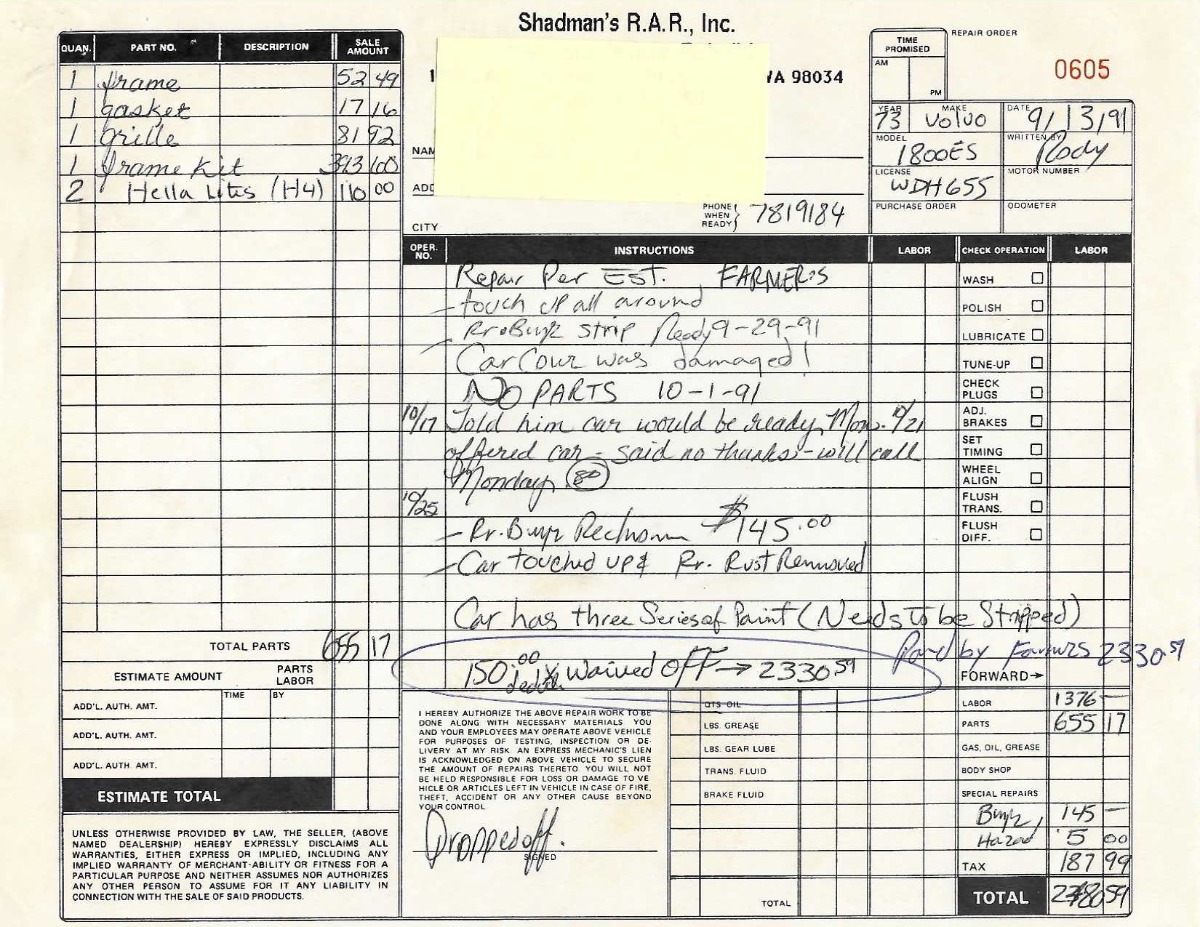 Shadman's R.A.R., Inc.
QUAN. PART NO. DESCRIPTION SALE AMOUNT
1 frame 52 49
1 gasket 17 16
1 grille 81 92
1 frame Kit 393 60
2 Hella Lites (H4) 110 00
TOTAL PARTS 655 17
ESTIMATE AMOUNT PARTS LABOR
TIME BY
ADD'L. AUTH. AMT.
ADD'L. AUTH. AMT.
ADD'L. AUTH. AMT.
ESTIMATE TOTAL
UNLESS OTHERWISE PROVIDED BY LAW, THE SELLER, (ABOVE
NAMED DEALERSHIP) HEREBY EXPRESSLY DISCLAIMS ALL
WARRANTIES, EITHER EXPRESS OR IMPLIED, INCLUDING ANY
IMPLIED WARRANTY OF MERCHANT-ABILITY OR FITNESS FOR A
PARTICULAR PURPOSE AND NEITHER ASSUMES NOR AUTHORIZES
ANY OTHER PERSON TO ASSUME FOR IT ANY LIABILITY IN
CONNECTION WITH THE SALE OF SAID PRODUCTS.
1 WA 98034
NAM
ADD
CITY
PHONE WHEN READY 7819184
TIME PROMISED
AM
PM
REPAIR ORDER
0605
YEAR 73 MAKE Volvo DATE 9/13/91
MODEL 1800ES WRITTEN BY Rody
LICENSE WDH655 MOTOR NUMBER
PURCHASE ORDER ODOMETER
OPER. NO. INSTRUCTIONS LABOR CHECK OPERATION LABOR
Repair Per EST. FARMERS
- touch up all around
- Rr. Bump strip Ready 9-29-91
Car Cover was damaged!
NO PARTS 10-1-91
10/17 Told him car would be ready Mon. 10/21
offered car - said no thanks - will call
Monday
10/25
- Rr. Bump Rechrom $145.00
- Car touched up & Rr. Rust Removed
Car has three Series of Paint (Needs To be Stripped)
150.00 deduc waived off → 2330 59
Paid by Farmers 2330 59
WASH
POLISH
LUBRICATE
TUNE-UP
CHECK PLUGS
ADJ. BRAKES
SET TIMING
WHEEL ALIGN
FLUSH TRANS.
FLUSH DIFF.
FORWARD→
I HEREBY AUTHORIZE THE ABOVE REPAIR WORK TO BE
DONE ALONG WITH NECESSARY MATERIALS YOU
AND YOUR EMPLOYEES MAY OPERATE ABOVE VEHICLE
FOR PURPOSES OF TESTING, INSPECTION OR DE-
LIVERY AT MY RISK AN EXPRESS MECHANIC'S LIEN
IS ACKNOWLEDGED ON ABOVE VEHICLE TO SECURE
THE AMOUNT OF REPAIRS THERETO YOU WILL NOT
BE HELD RESPONSIBLE FOR LOSS OR DAMAGE TO VE
HICLE OR ARTICLES LEFT IN VEHICLE IN CASE OF FIRE,
THEFT, ACCIDENT OR ANY OTHER CAUSE BEYOND
YOUR CONTROL
Dropped off.
SIGNED
QTS OIL
LBS. GREASE
LBS. GEAR LUBE
TRANS. FLUID
BRAKE FLUID
TOTAL
LABOR 1376 —
PARTS 655 17
GAS, OIL, GREASE
BODY SHOP
SPECIAL REPAIRS
Bump 145 —
Hazad 5 00
TAX 187 99
TOTAL